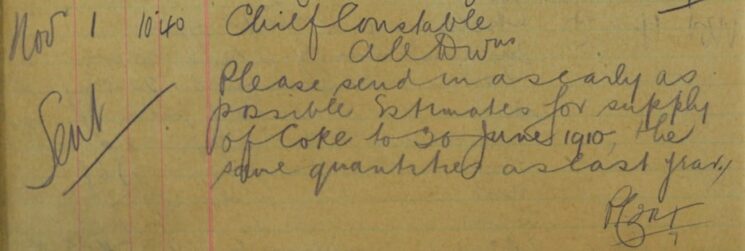 Nov 1 10 40 Chief Constable
All Dwns
Please send in as early as
possible Estimates for supply
Sent
of Coke to 30 June 1910, the
same quantities as last year